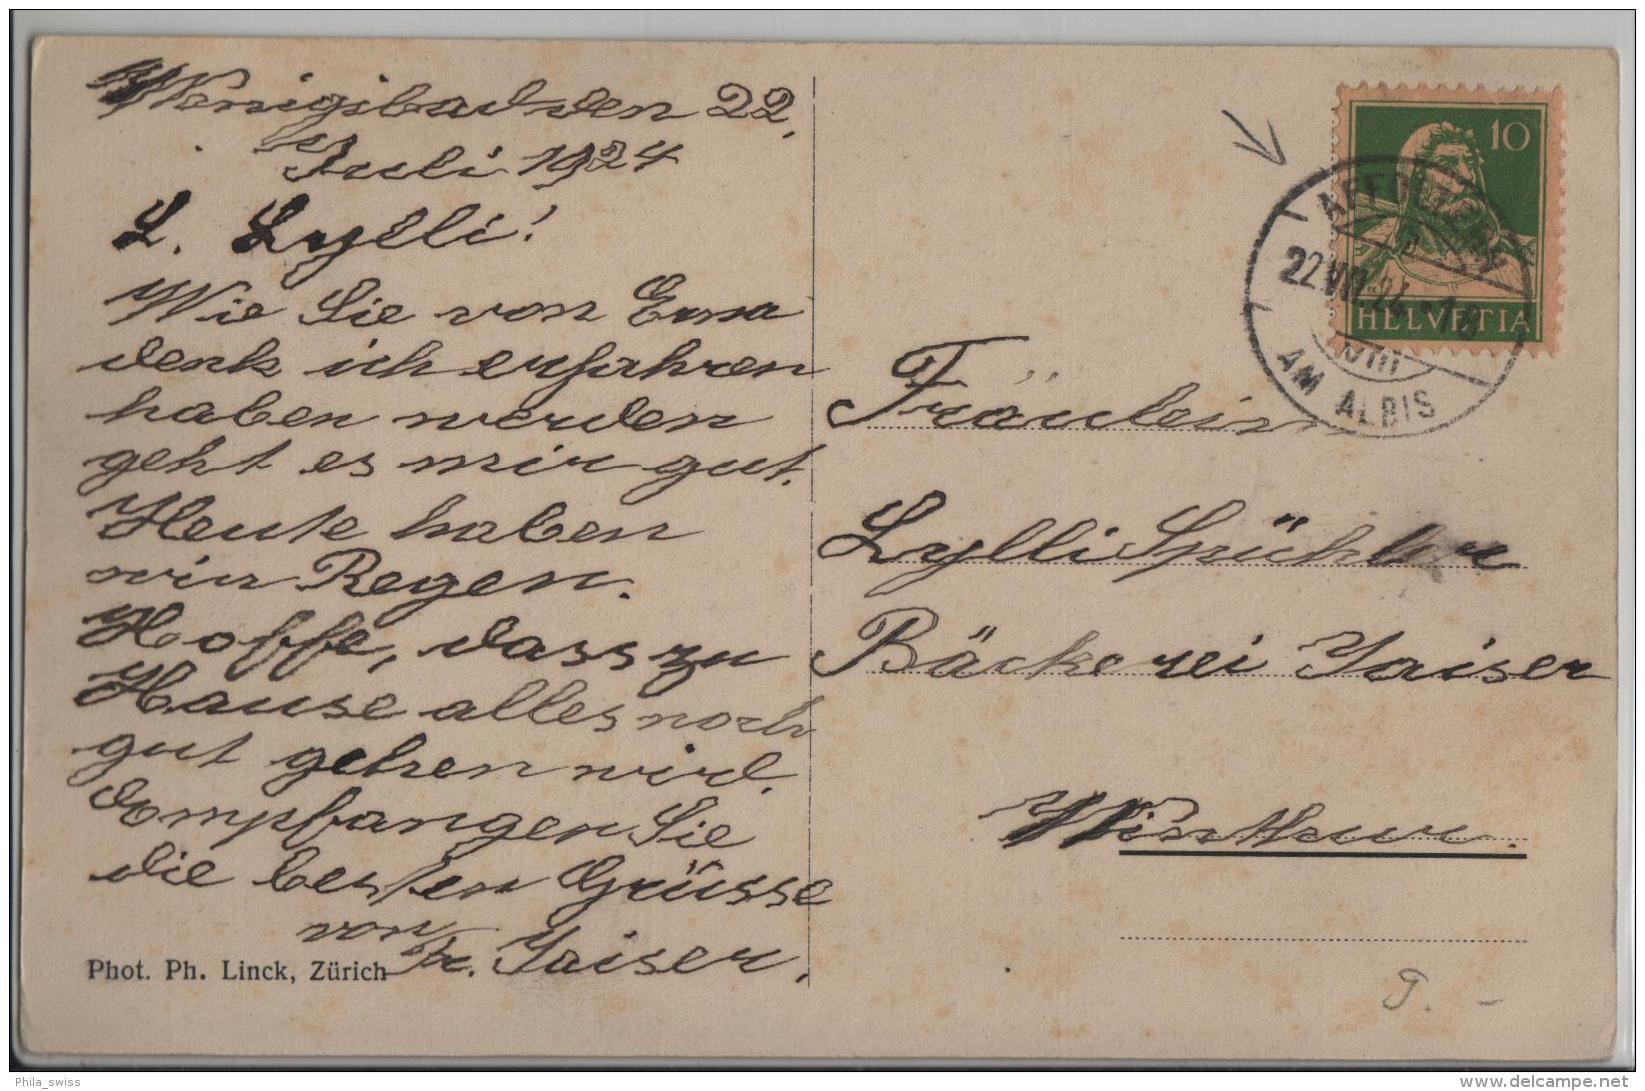 Wengibad den 22.
Juli 1924
L. Lylli!
Wie Sie von Erna
denk ich erfahren
haben werden
geht es mir gut.
Heute haben
wir Regen.
Hoffe, dass zu
Hause alles noch
gut gehen wird.
Empfangen Sie
die besten Grüsse
von
Fr. Jaiser.
Phot. Ph. Linck, Zürich
10
HELVETIA
AFFOLTERN
22.VII.24.-18
AM ALBIS
Fräulein
Lylli Spühler
Bäckerei Jaiser
Winthur.
Phila_swiss
www.delcampe.net